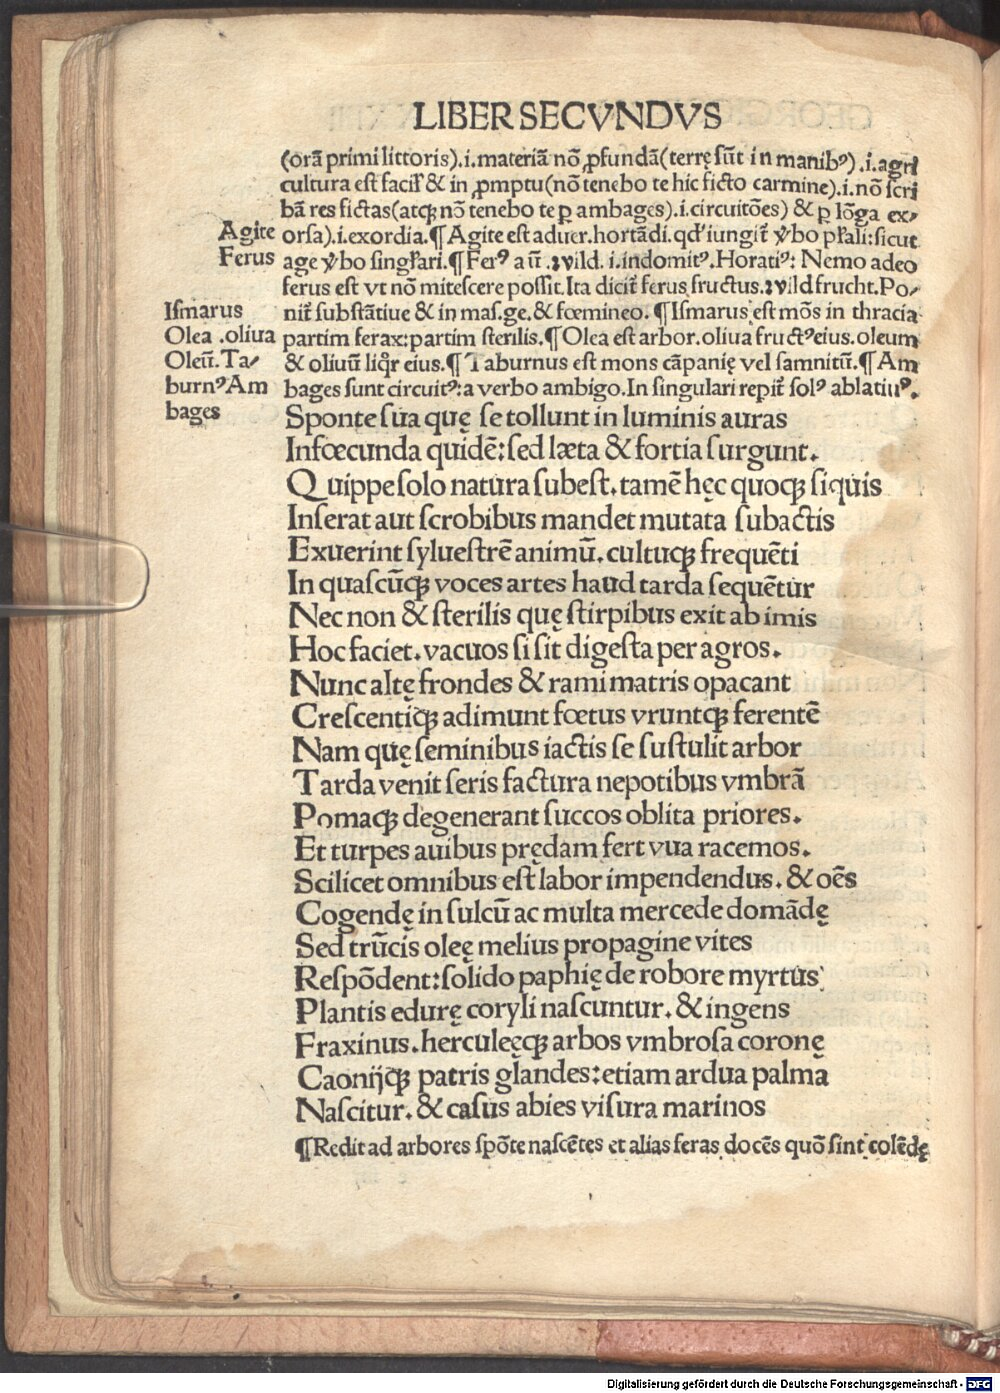 LIBER SECVNDVS
(orā primi littoris).i.materiā nō ꝓfundā(terrę sūt in manibꝰ).i.agri
cultura est facilꝭ & in ꝓmptu(nō tenebo te hic ficto carmine).i.nō scri
bā res fictas(atqꝫ nō tenebo te ꝑ ambages).i.circuitōes) & ꝑ lōga ex⸗
Agite orsa).i.exordia.¶ Agite est aduer.hortādi.qd' iungit̄ v̓bo pl'ali:sicut
Ferus age v̓bo singl'ari.¶ Ferꝰ aū .wild. i.indomitꝰ.Horatiꝰ: Nemo adeo
ferus est vt nō mitescere possit. Ita dicit̄ ferus fructus.wildfrucht.Po⸗
Ismarus nit̄ substātiue & in mas.ge.& fœmineo. ¶ Ismarus est mōs in thracia
Olea .oliua partim ferax:partim sterilis.¶ Olea est arbor.oliua fructꝰeius.oleum
Oleū.Ta⸗ & oliuū liq̄r eius.¶ Taburnus est mons cāpanię vel samnitū.¶ Am
burnꝰAm bages sunt circuitꝰ: a verbo ambigo.In singulari repit̄ solꝰ ablatiuꝰ.
bages
Sponte sua quę se tollunt in luminis auras
Infœcunda quidē: sed læta & fortia surgunt.
Quippe solo natura subest. tamē hęc quoqꝫ siquis
Inserat aut scrobibus mandet mutata subactis
Exuerint syluestrē animū. cultuqꝫ frequēti
In quascūqꝫ voces artes haud tarda sequētur
Nec non & sterilis quę stirpibus exit ab imis
Hoc faciet. vacuos si sit digesta per agros.
Nunc altę frondes & rami matris opacant
Crescentiqꝫ adimunt fœtus vruntqꝫ ferentē
Nam quę seminibus iactis se sustulit arbor
Tarda venit seris factura nepotibus vmbrā
Pomaqꝫ degenerant succos oblita priores.
Et turpes auibus prędam fert vua racemos.
Scilicet omnibus est labor impendendus. & oēs
Cogendę in sulcū ac multa mercede domādę
Sed trūcis oleę melius propagine vites
Respōdent: solido paphię de robore myrtus
Plantis edurę coryli nascuntur. & ingens
Fraxinus. herculeęqꝫ arbos vmbrosa coronę
Caonijqꝫ patris glandes: etiam ardua palma
Nascitur. & casus abies visura marinos
¶ Redit ad arbores spōte nascētes et alias feras docēs quō sint colēdę
Digitalisierung gefördert durch die Deutsche Forschungsgemeinschaft - DFG